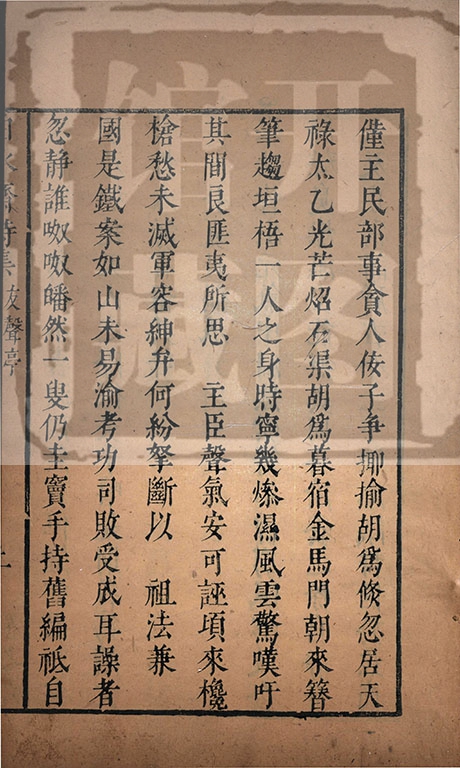 僅主民部事貪人侒子争揶揄胡為倐忽居天
祿太乙光芒炤石渠胡為暮宿金馬門朝來簪
筆趨垣梧一人之身時寧幾燥濕風雲驚嘆吁
其間良匪夷所思 主臣聲氣安可誣頃來欃
槍愁未滅軍容紳弁何紛拏斷以 祖法兼
國是鐵案如山未易渝考功司敗受成耳譟者
忽静誰呶呶皤然一叟仍圭竇手持舊編祗自
詩集 聲亭
开图
馆藏